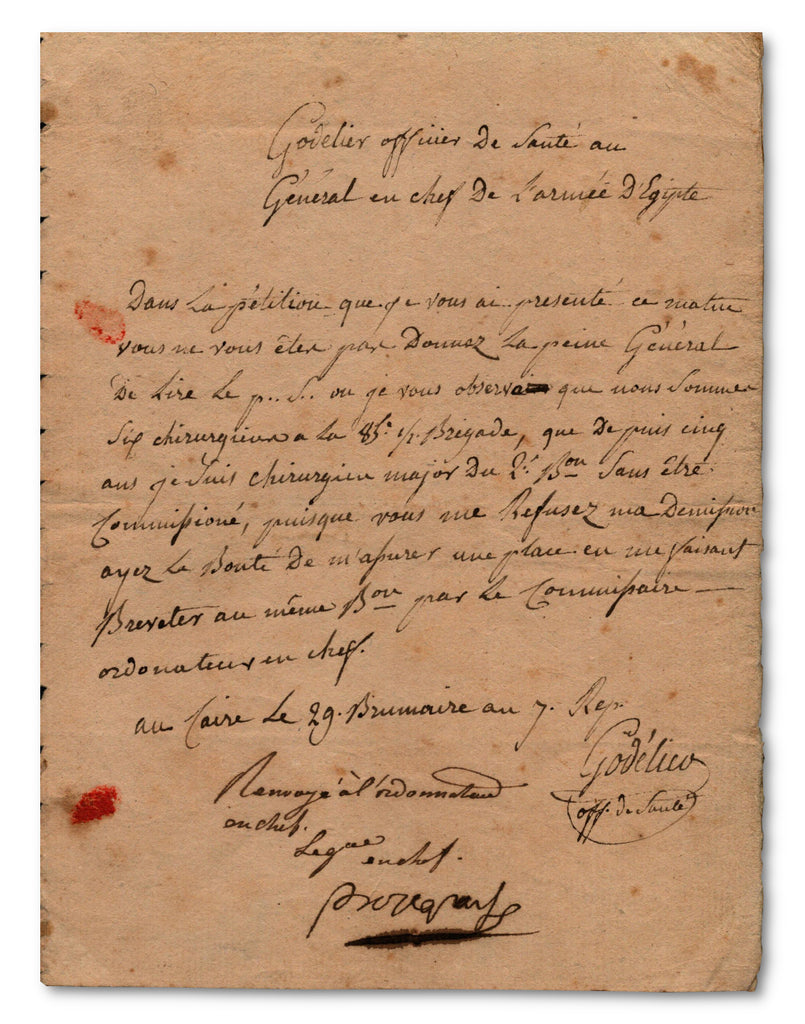 Godelier officier De Santé au
Général en chef De L'armée D'Egipte
Dans La pétition que je vous ai presenté ce matin
vous ne vous êtes pas Donnez La peine Général
De Lire Le p.. S.. ou je vous observai que nous Sommes
Six chirurgiens a La 85.e 1/2 Brigade, que Depuis cinq
ans je Suis chirurgien major Du 2.e Bon Sans être
Commissioné, puisque vous me Refusez ma Demission
ayez La Bonté De m'assurer une place en me faisant
Breveter au même Bon par Le Commissaire —
ordonateur en chef.
au Caire Le 29. Brumaire an 7. Rep.
Godélier
off. de Santé
Renvoyé à l'ordonnateur
en chef.
Le gal en chef.